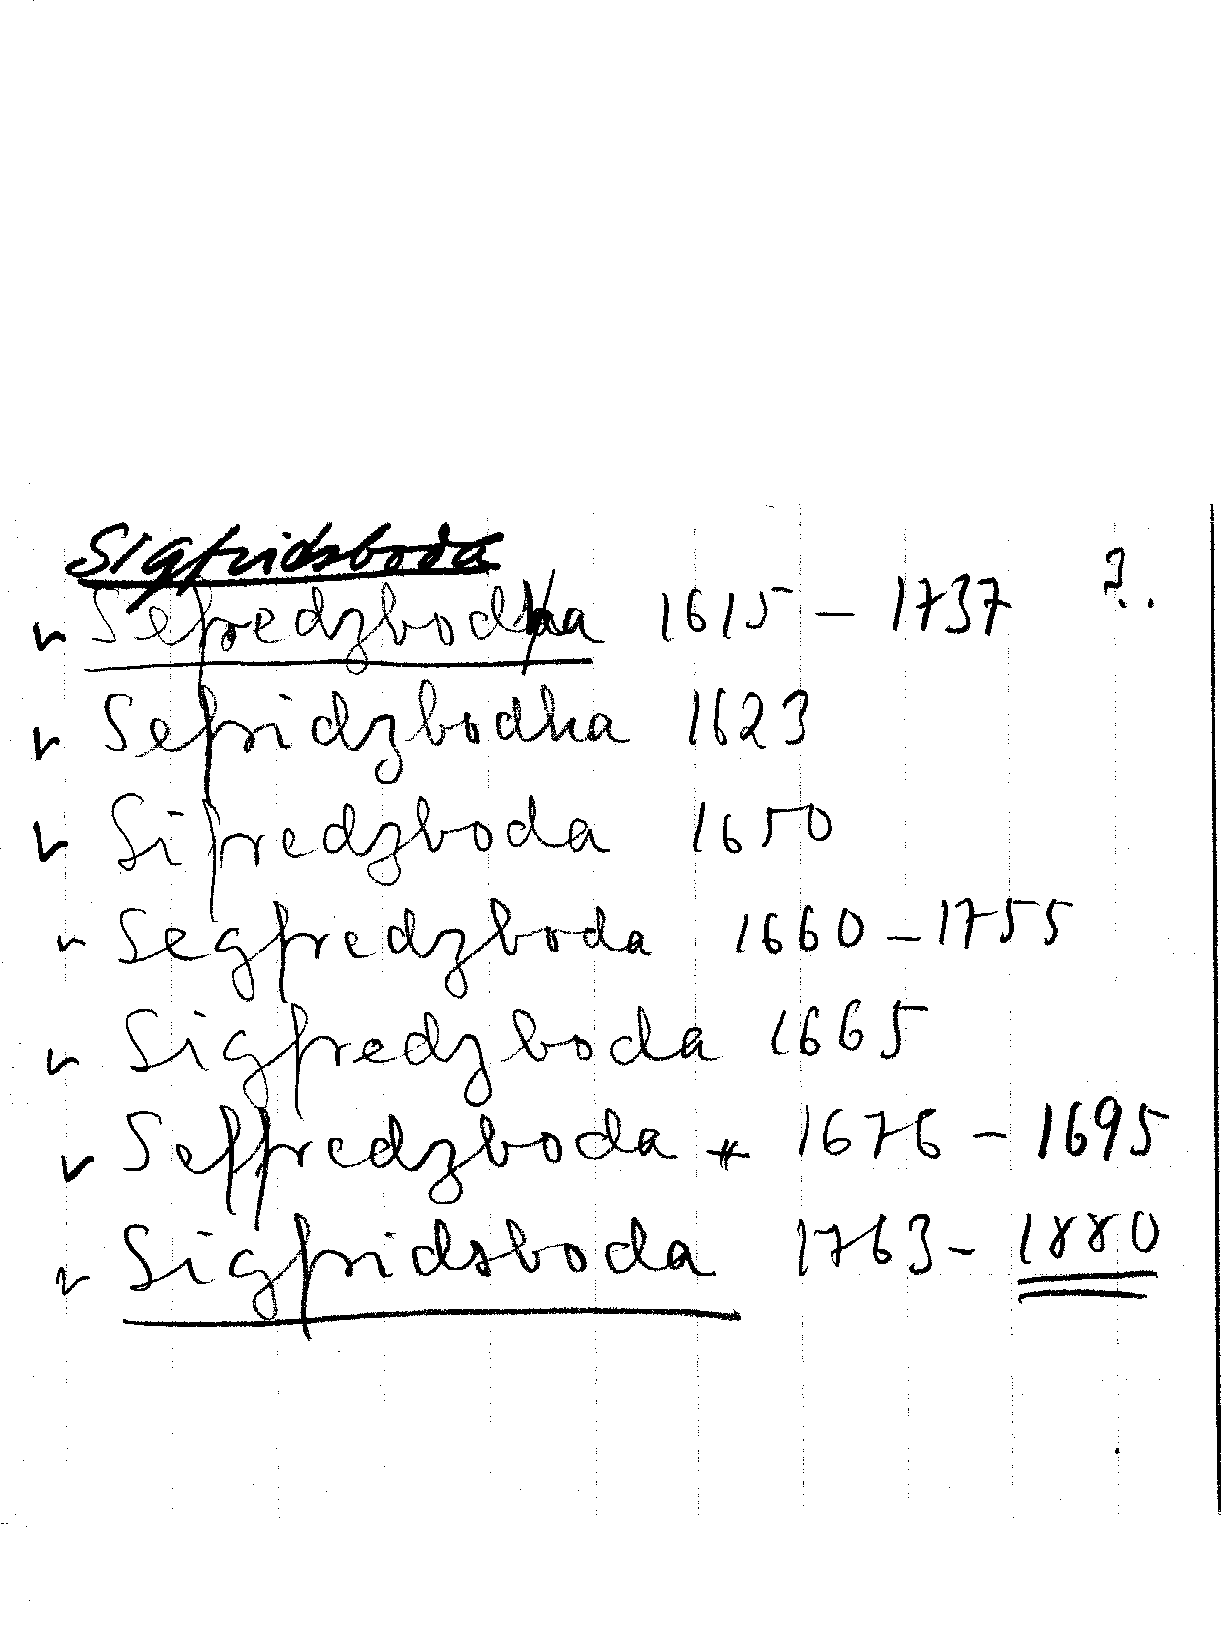 Sigfridsboda
✓ Sefredzboda 1615 – 1737 ?..
✓ Sefridzbodha 1623
✓ Sifredzboda 1650
✓ Segfredzboda 1660 – 1755
✓ Sigfredzboda 1665
✓ Seffredzboda * 1676 – 1695
✓ Sigfridsboda 1763 – 1880